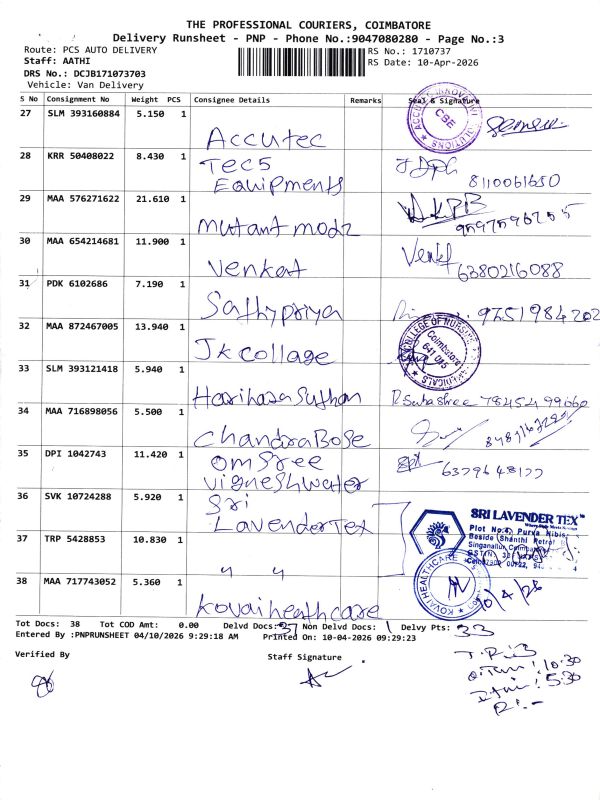 THE PROFESSIONAL COURIERS, COIMBATORE
Delivery Runsheet - PNP - Phone No.:9047080280 - Page No.:3
Route: PCS AUTO DELIVERY
RS No.: 1710737
Staff: AATHI
RS Date: 10-Apr-2026
DRS No.: DCJB171073703
Vehicle: Van Delivery
S No Consignment No Weight PCS Consignee Details Remarks Seal & Signature
27 SLM 393160884 5.150 1 Accutec
CBE
28 KRR 50408022 8.430 1 Tecs Equipments 8110061650
29 MAA 576271622 21.610 1 Mutant modz
30 MAA 654214681 11.900 1 Venkat Venkat 6380216088
31 PDK 6102686 7.190 1 Sathypriya
32 MAA 872467005 13.940 1 Jk collage
COLLEGE OF NURSING
Coimbatore
33 SLM 393121418 5.940 1 Hariharasuthan
34 MAA 716898056 5.500 1 ChandraBose
35 DPI 1042743 11.420 1 Om Sree Vignesh water
36 SVK 10724288 5.920 1 Sri Lavender Tex
SRI LAVENDER TEX
Plot No:4, Purva Hibis
Beside Shanthi Petrol B
Singanallur, Coimbatore
37 TRP 5428853 10.830 1 " "
38 MAA 717743052 5.360 1 kovaiheathcare
KOVAI HEALTHCARE
10/4/26
Tot Docs: 38 Tot COD Amt: 0.00 Delvd Docs: 37 Non Delvd Docs: 1 Delvy Pts: 33
Entered By :PNPRUNSHEET 04/10/2026 9:29:18 AM Printed On: 10-04-2026 09:29:23
Verified By
Staff Signature
10:30
5:30